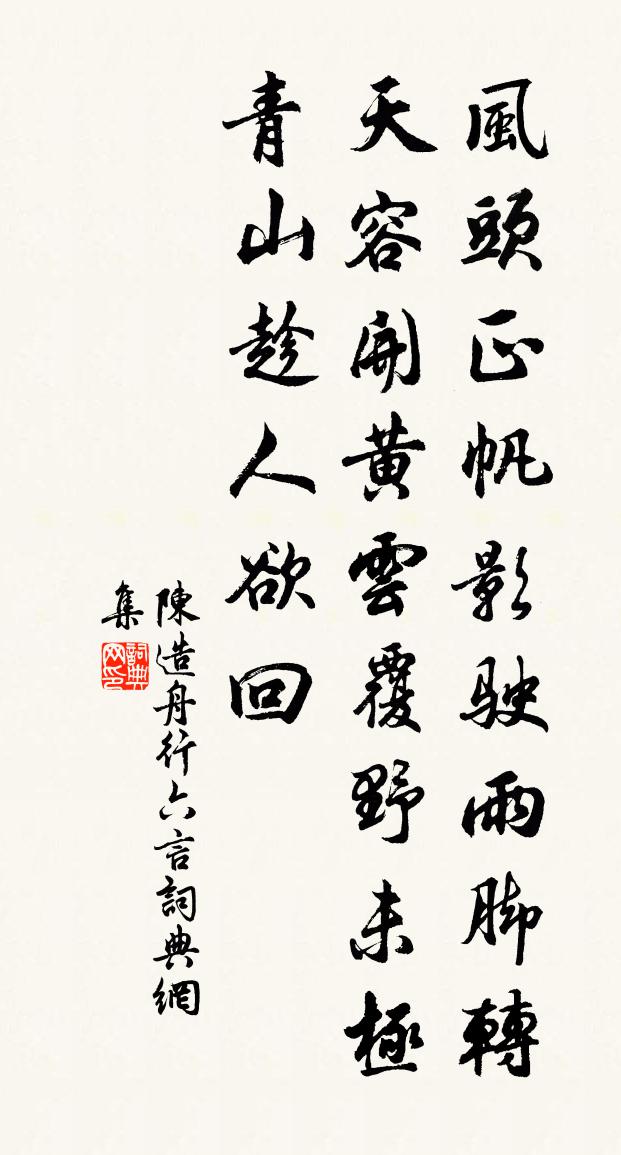 風頭正帆影駛雨脚轉
天容開黄雲覆野未極
青山趁人欲回
陳造舟行六言詞典網
集
詞典
网印